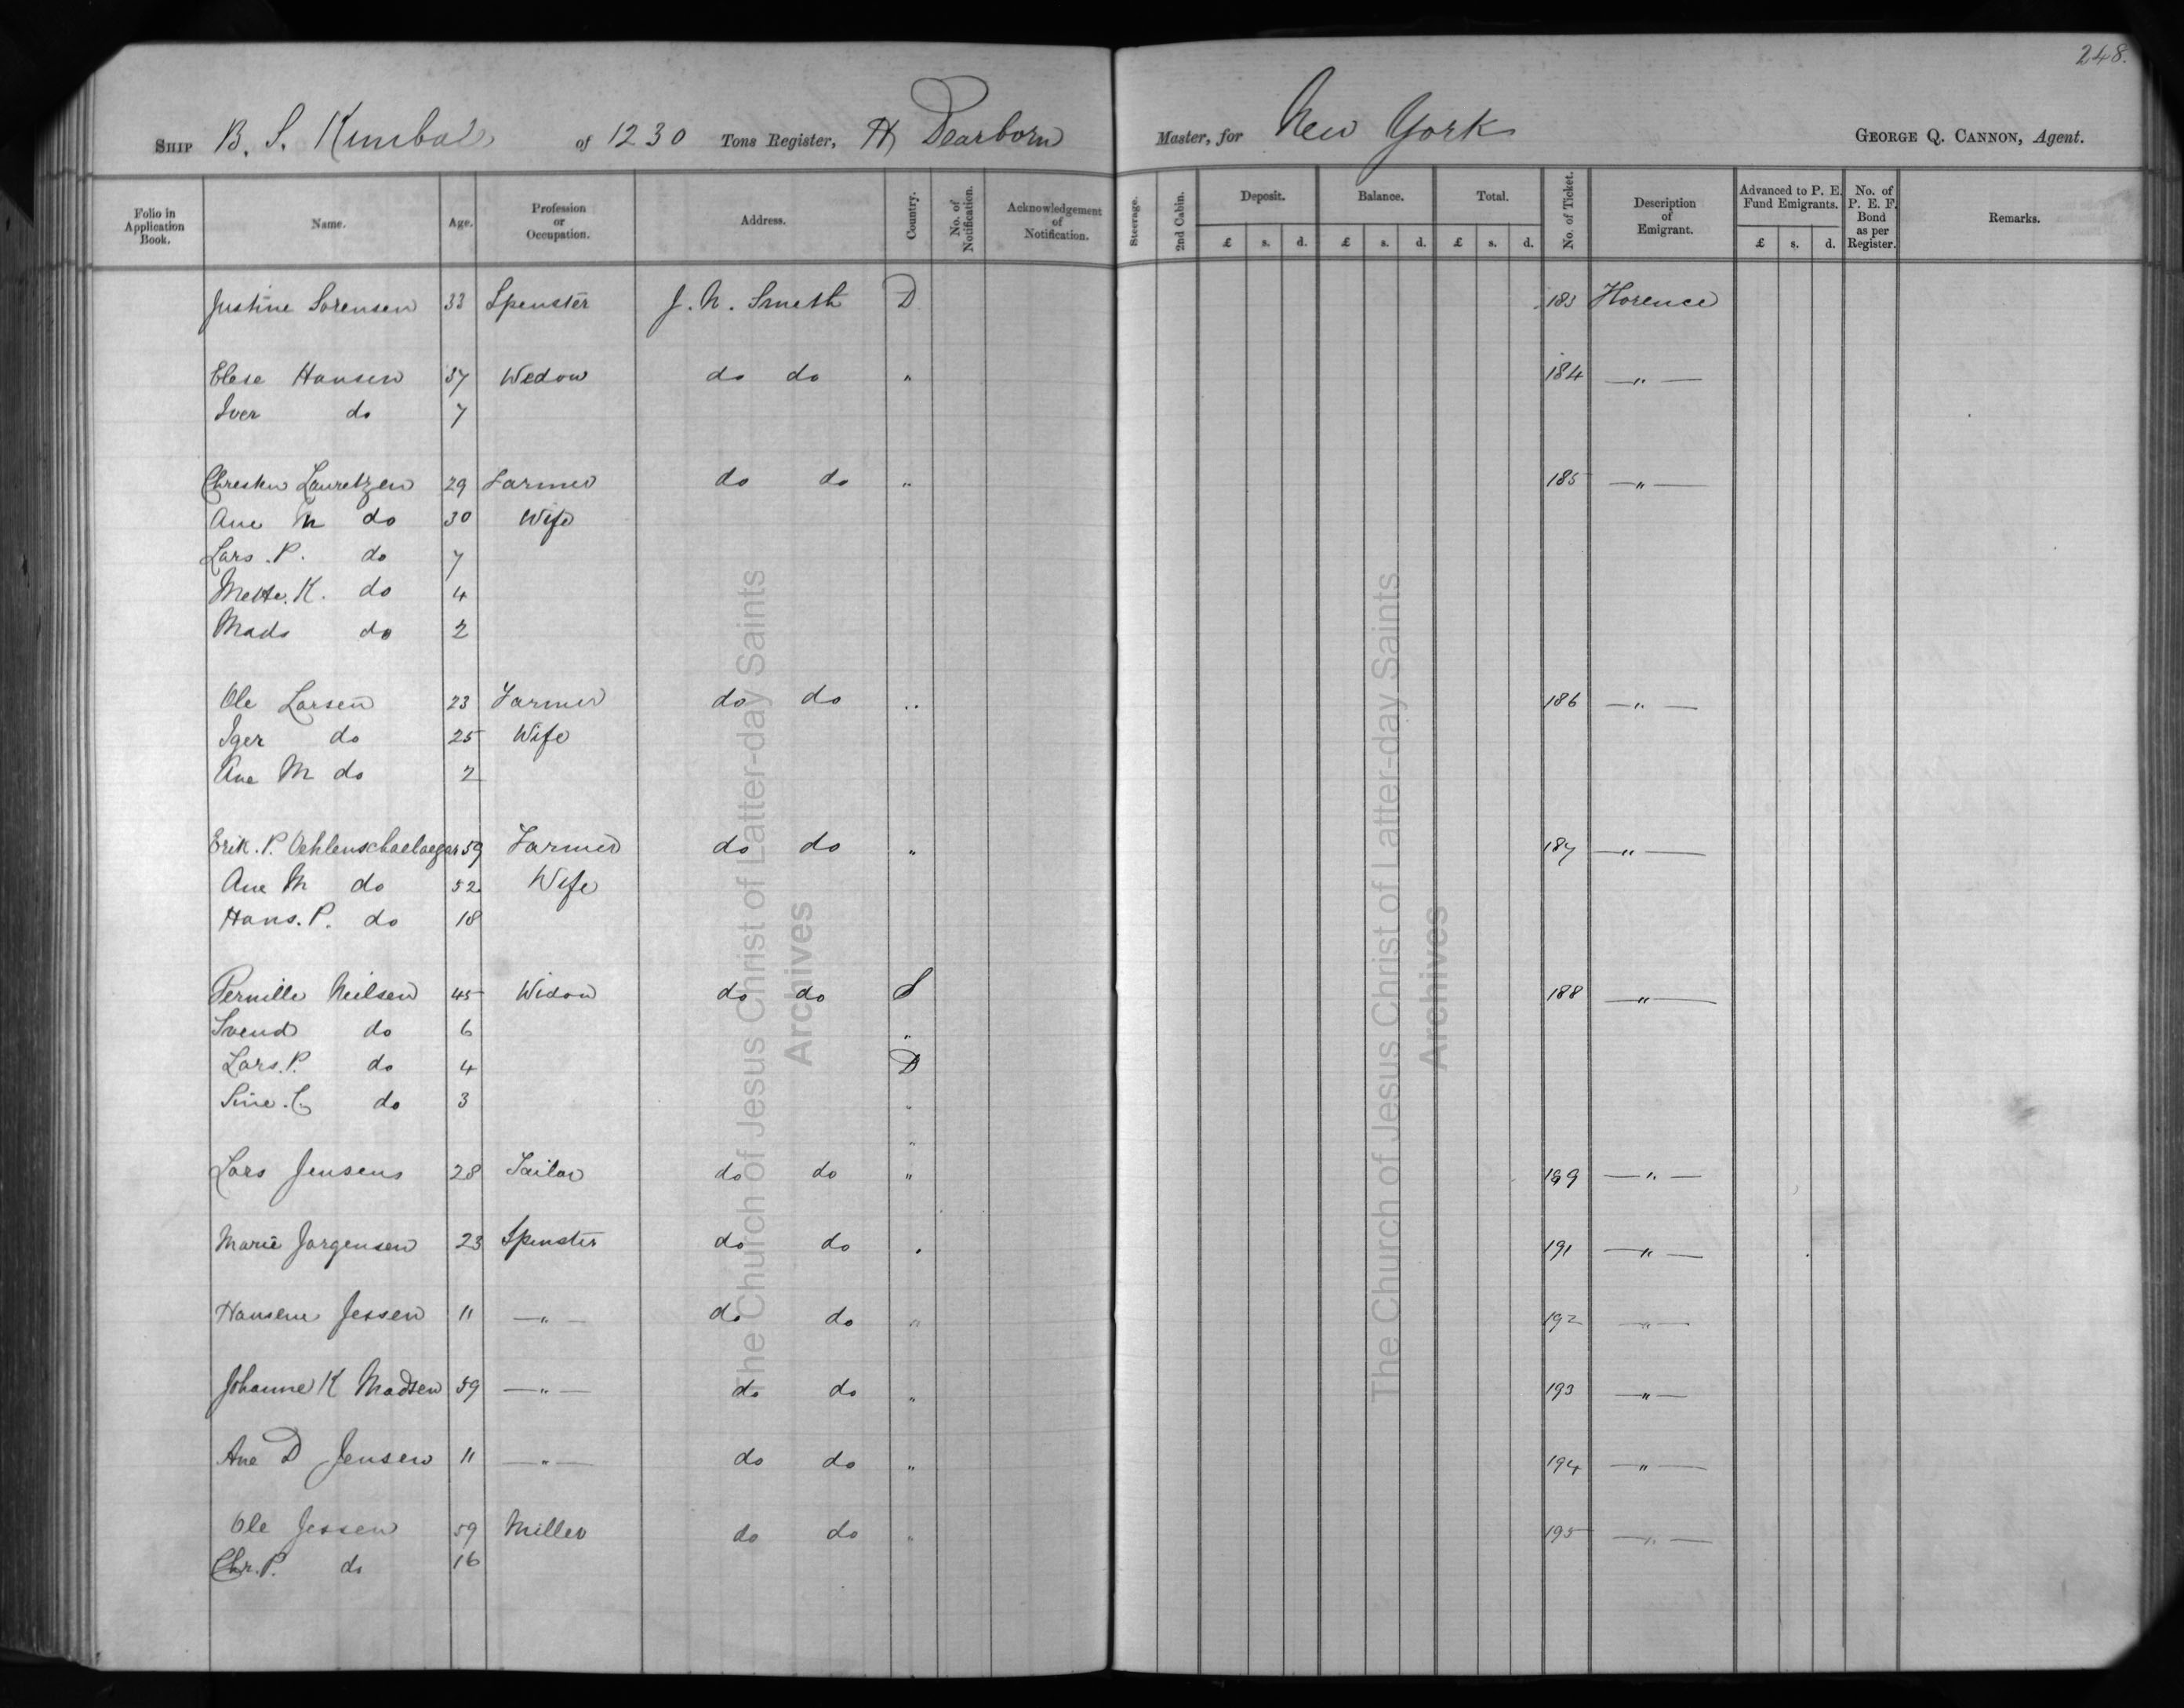 248.
SHIP B. S. Kimball of 1230 Tons Register, H Dearborn Master, for New York GEORGE Q. CANNON, Agent.
Folio in Application Book. Name. Age. Profession or Occupation. Address. Country. No. of Notification. Acknowledgement of Notification. Steerage. 2nd Cabin. Deposit. £ s. d. Balance. £ s. d. Total. £ s. d. No. of Ticket. Description of Emigrant. Advanced to P. E. Fund Emigrants. £ s. d. No. of P. E. F. Bond as per Register. Remarks.
Justine Sorensen 33 Spenster J. N. Smeth D 183 Florence
Elese Hansen 37 Wedow do do " 184 — " —
Iver do 7
Chresten Lauretzen 29 Farmer do do " 185 — " —
Ane M do 30 Wife
Lars. P. do 7
Mette. K. do 4
Mads do 2
Ole Larsen 23 Farmer do do " 186 — " —
Iger do 25 Wife
Ane M do 2
Erik. P. Oehlenschaelaeger 59 Farmer do do " 187 — " —
Ane M do 52 Wife
Hans. P. do 18
Pernille Neilsen 45 Widow do do S 188 — " —
Svend do 6 "
Lars. P. do 4 D
Sine. C do 3 "
"
Lars Jensens 28 Tailor do do " — " —
Marie Jorgensen 23 Spenster do do " 191 — " —
Hansene Jessen 11 — " — do do " 192 — " —
Johanne K Madsen 59 — " — do do " 193 — " —
Ane D Jensen 11 — " — do do " 194 — " —
Ole Jessen 59 Miller do do " 195 — " —
Chr. P. do 16
The Church of Jesus Christ of Latter-day Saints
Archives
The Church of Jesus Christ of Latter-day Saints
Archives